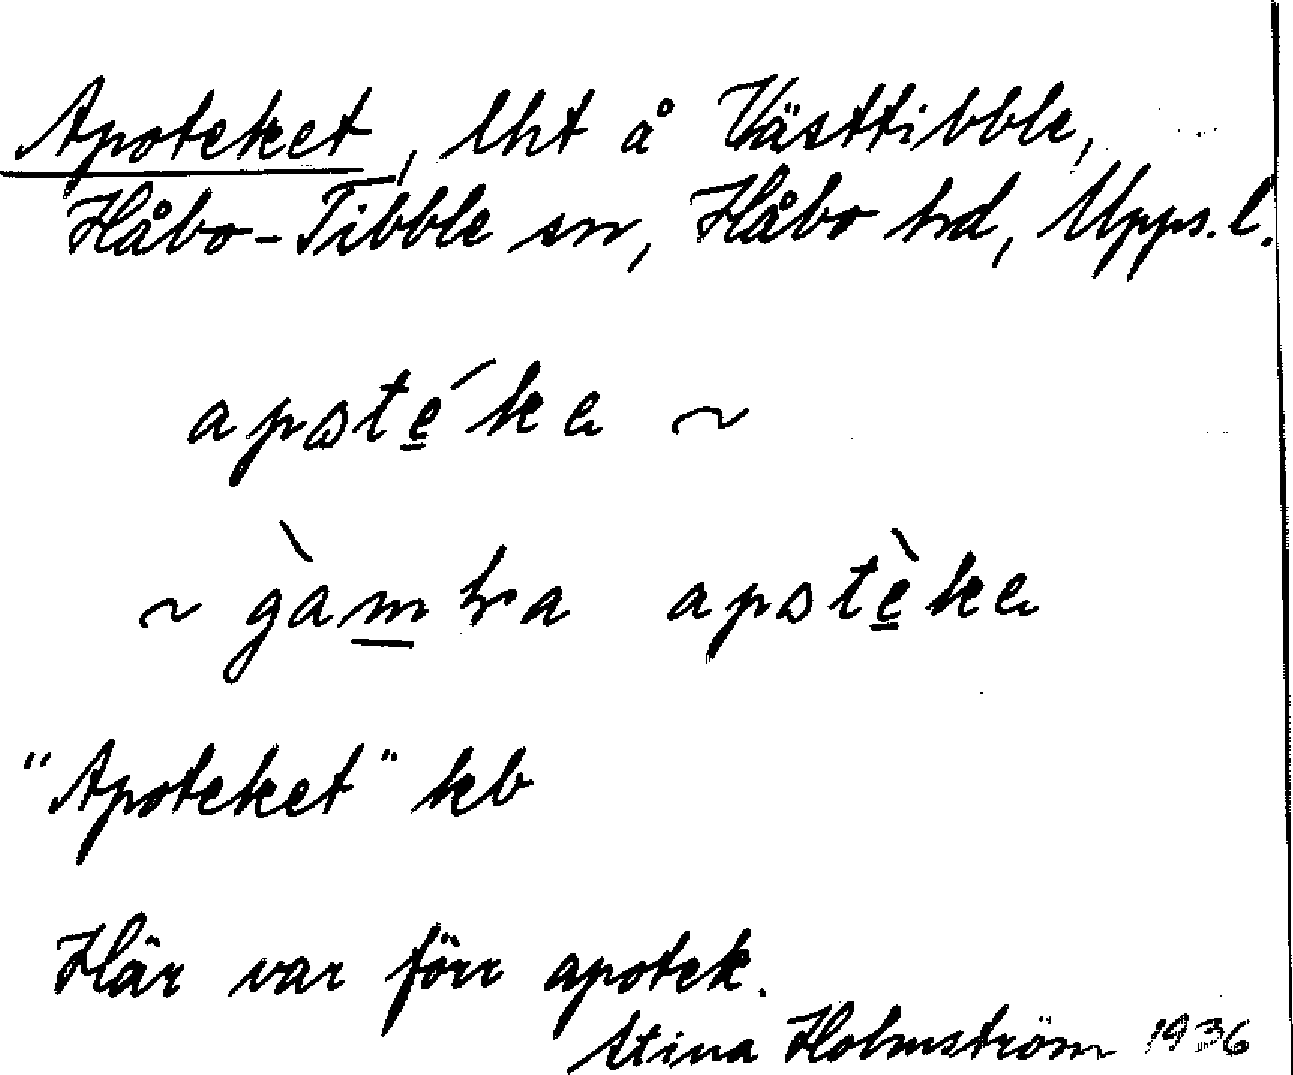 Apoteket, lht å Västtibble,
Håbo-Tibble sn, Håbo hd, Upps. l.
apɷte̲´ka ~
~ gàm̲ḷa apɷtè̲ka
"Apoteket" kb
Här var förr apotek.
Stina Holmström 1936